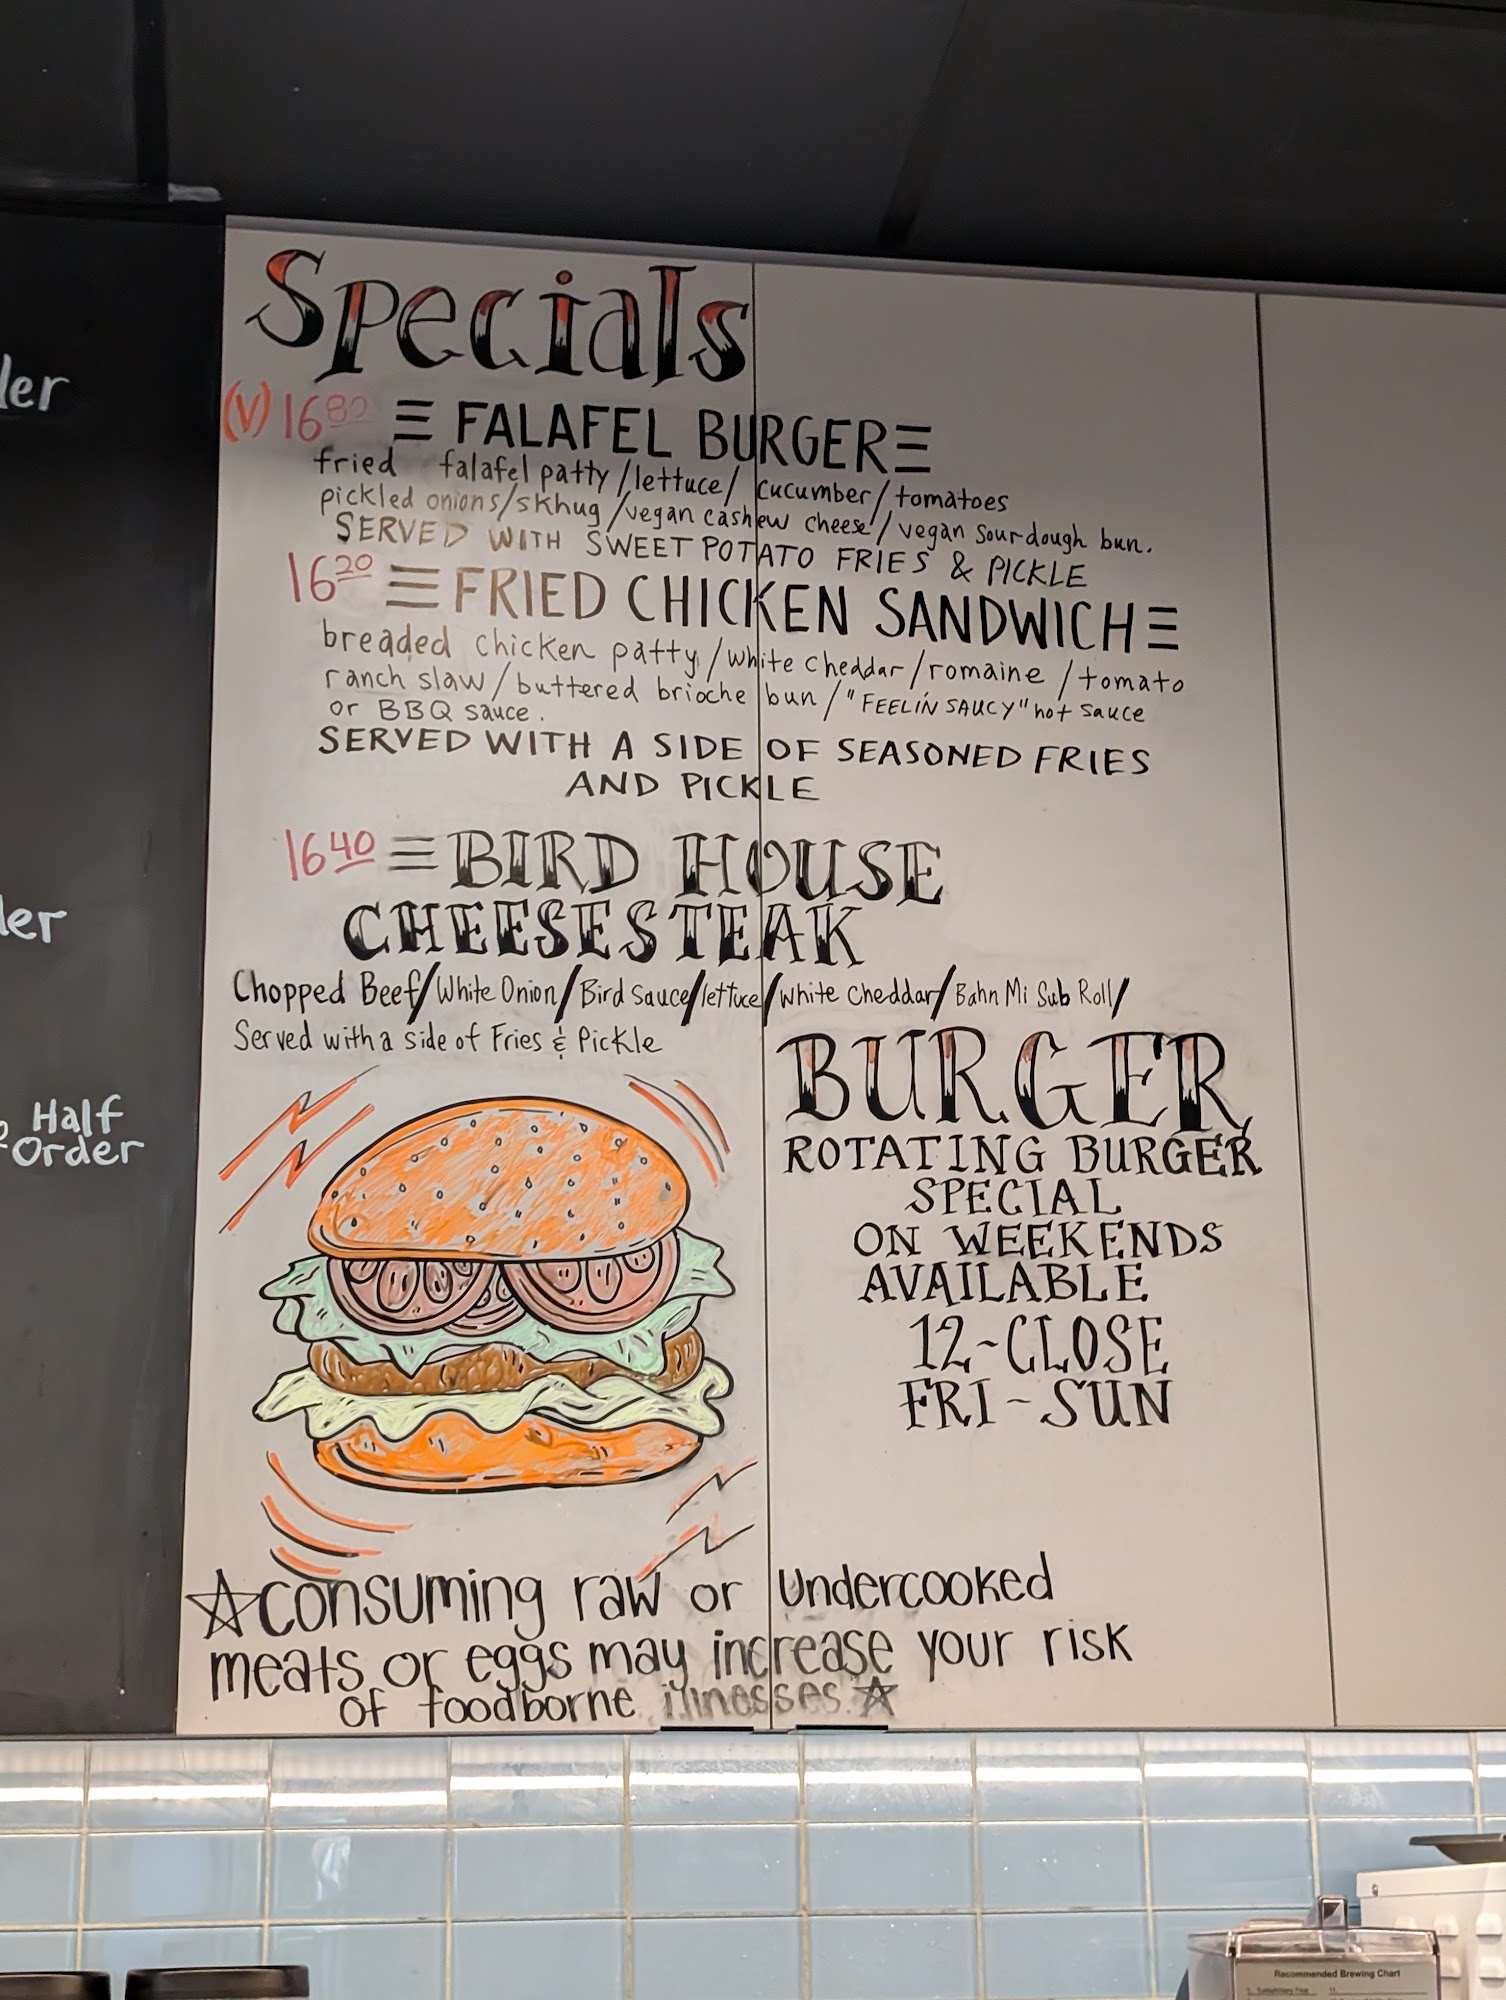 Specials
(V) 16 80 FALAFEL BURGER
fried falafel patty / lettuce / cucumber / tomatoes
pickled onions / skhug / vegan cashew cheese / vegan sourdough bun.
SERVED WITH SWEET POTATO FRIES & PICKLE
16 20 FRIED CHICKEN SANDWICH
breaded chicken patty / white cheddar / romaine / tomato
ranch slaw / buttered brioche bun / "FEELIN SAUCY" hot sauce
or BBQ sauce.
SERVED WITH A SIDE OF SEASONED FRIES
AND PICKLE
16 40 BIRD HOUSE
CHEESESTEAK
Chopped Beef / White Onion / Bird Sauce / lettuce / white cheddar / Bahn Mi Sub Roll /
Served with a side of Fries & Pickle
BURGER
ROTATING BURGER
SPECIAL
ON WEEKENDS
AVAILABLE
12-CLOSE
FRI-SUN
☆ Consuming raw or undercooked
meats or eggs may increase your risk
of foodborne illnesses. ☆
Half
Order
Recommended Brewing Chart